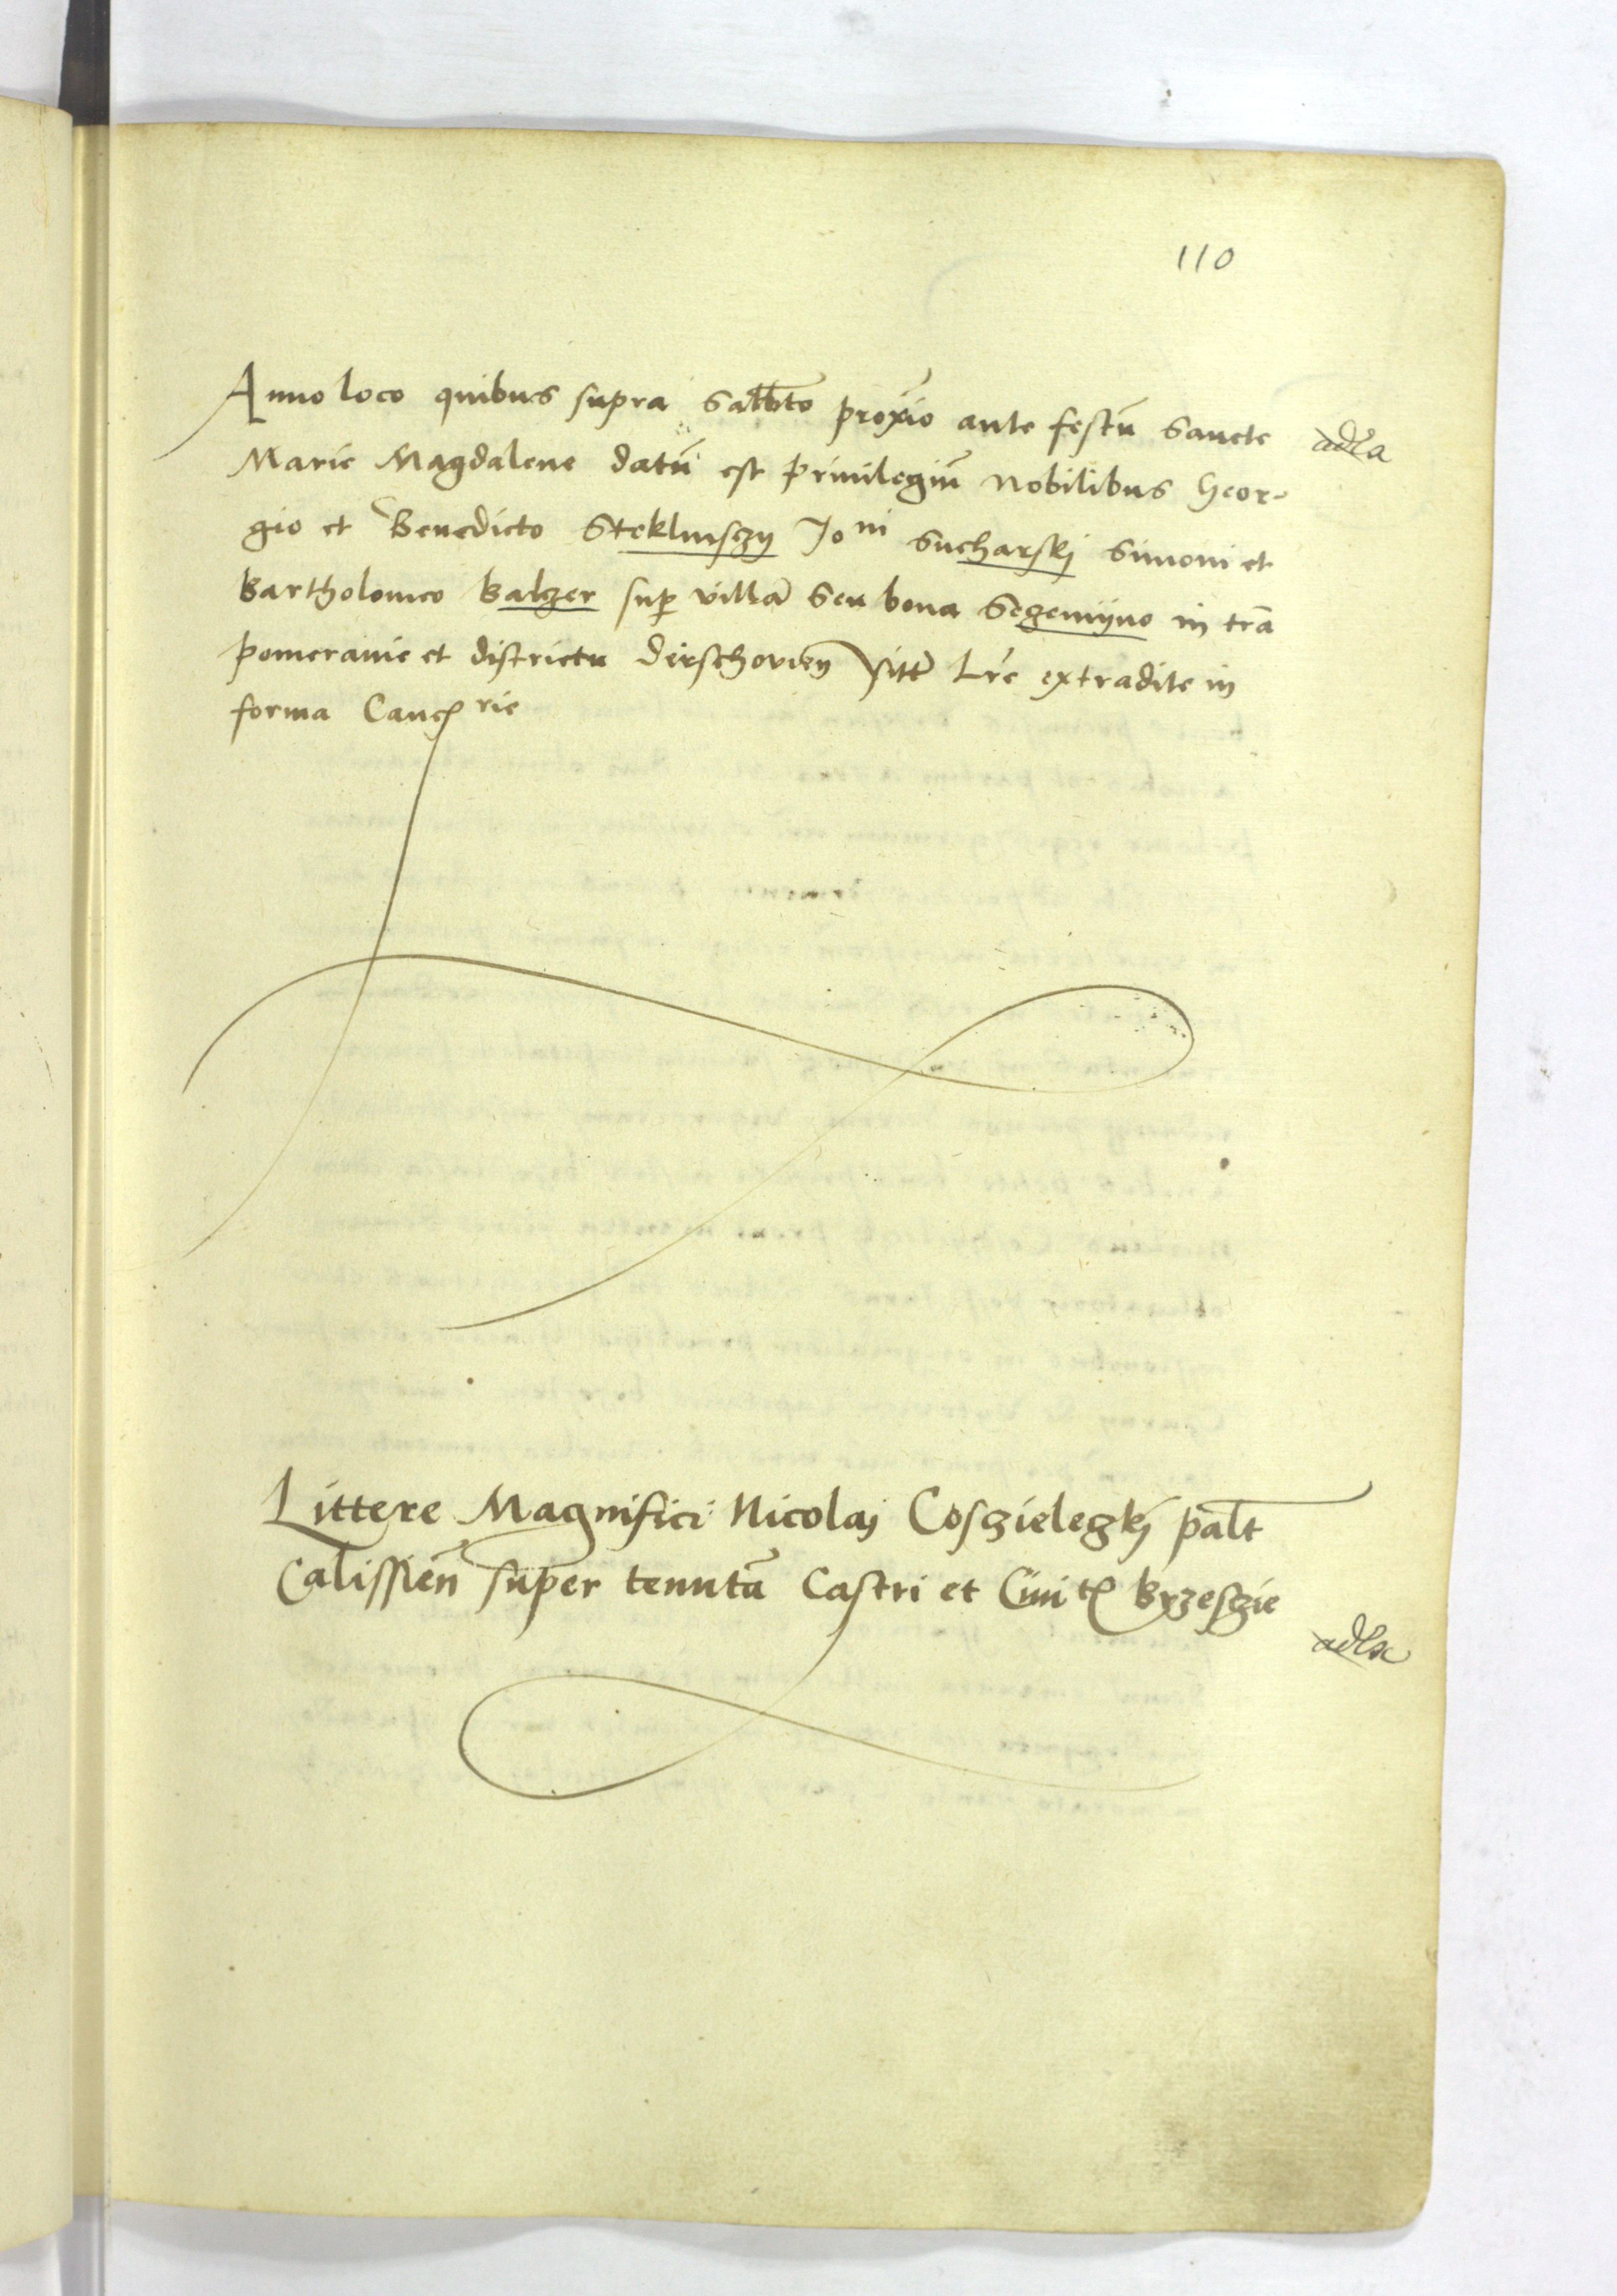 110
Anno loco quibus supra Sabbto proximo ante festũ Sancte
Marie Magdalene datũ est priuilegiũ Nobilibus Geor-
gio et Benedicto Steklinsczij Joni Sucharskj Simoni et
Bartholomeo Balzer sup villã Seu bona Segemijno in trã
pomeranie et districtu Dirschouien sitã Lrẽ extradite in
forma Canc rie
Littere Magnifici Nicolaj Cosczieleczkj palt
Calissieñ super tenutã Castri et Ciuit Brzesczie